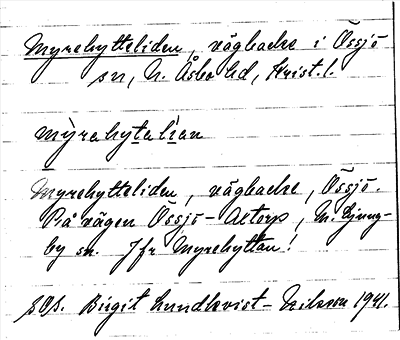 Myrehytteliden, vägbacke i Össjö
sn, N. Åsbo hd, Krist. l.
mỳrahytalìan
Myrehytteliden, vägbacke, Össjö.
På vägen Össjö - Altorp, N. Ljung-
by sn. Jfr Myrehyttan!
Birgit Lundkvist - Eriksson 1941.